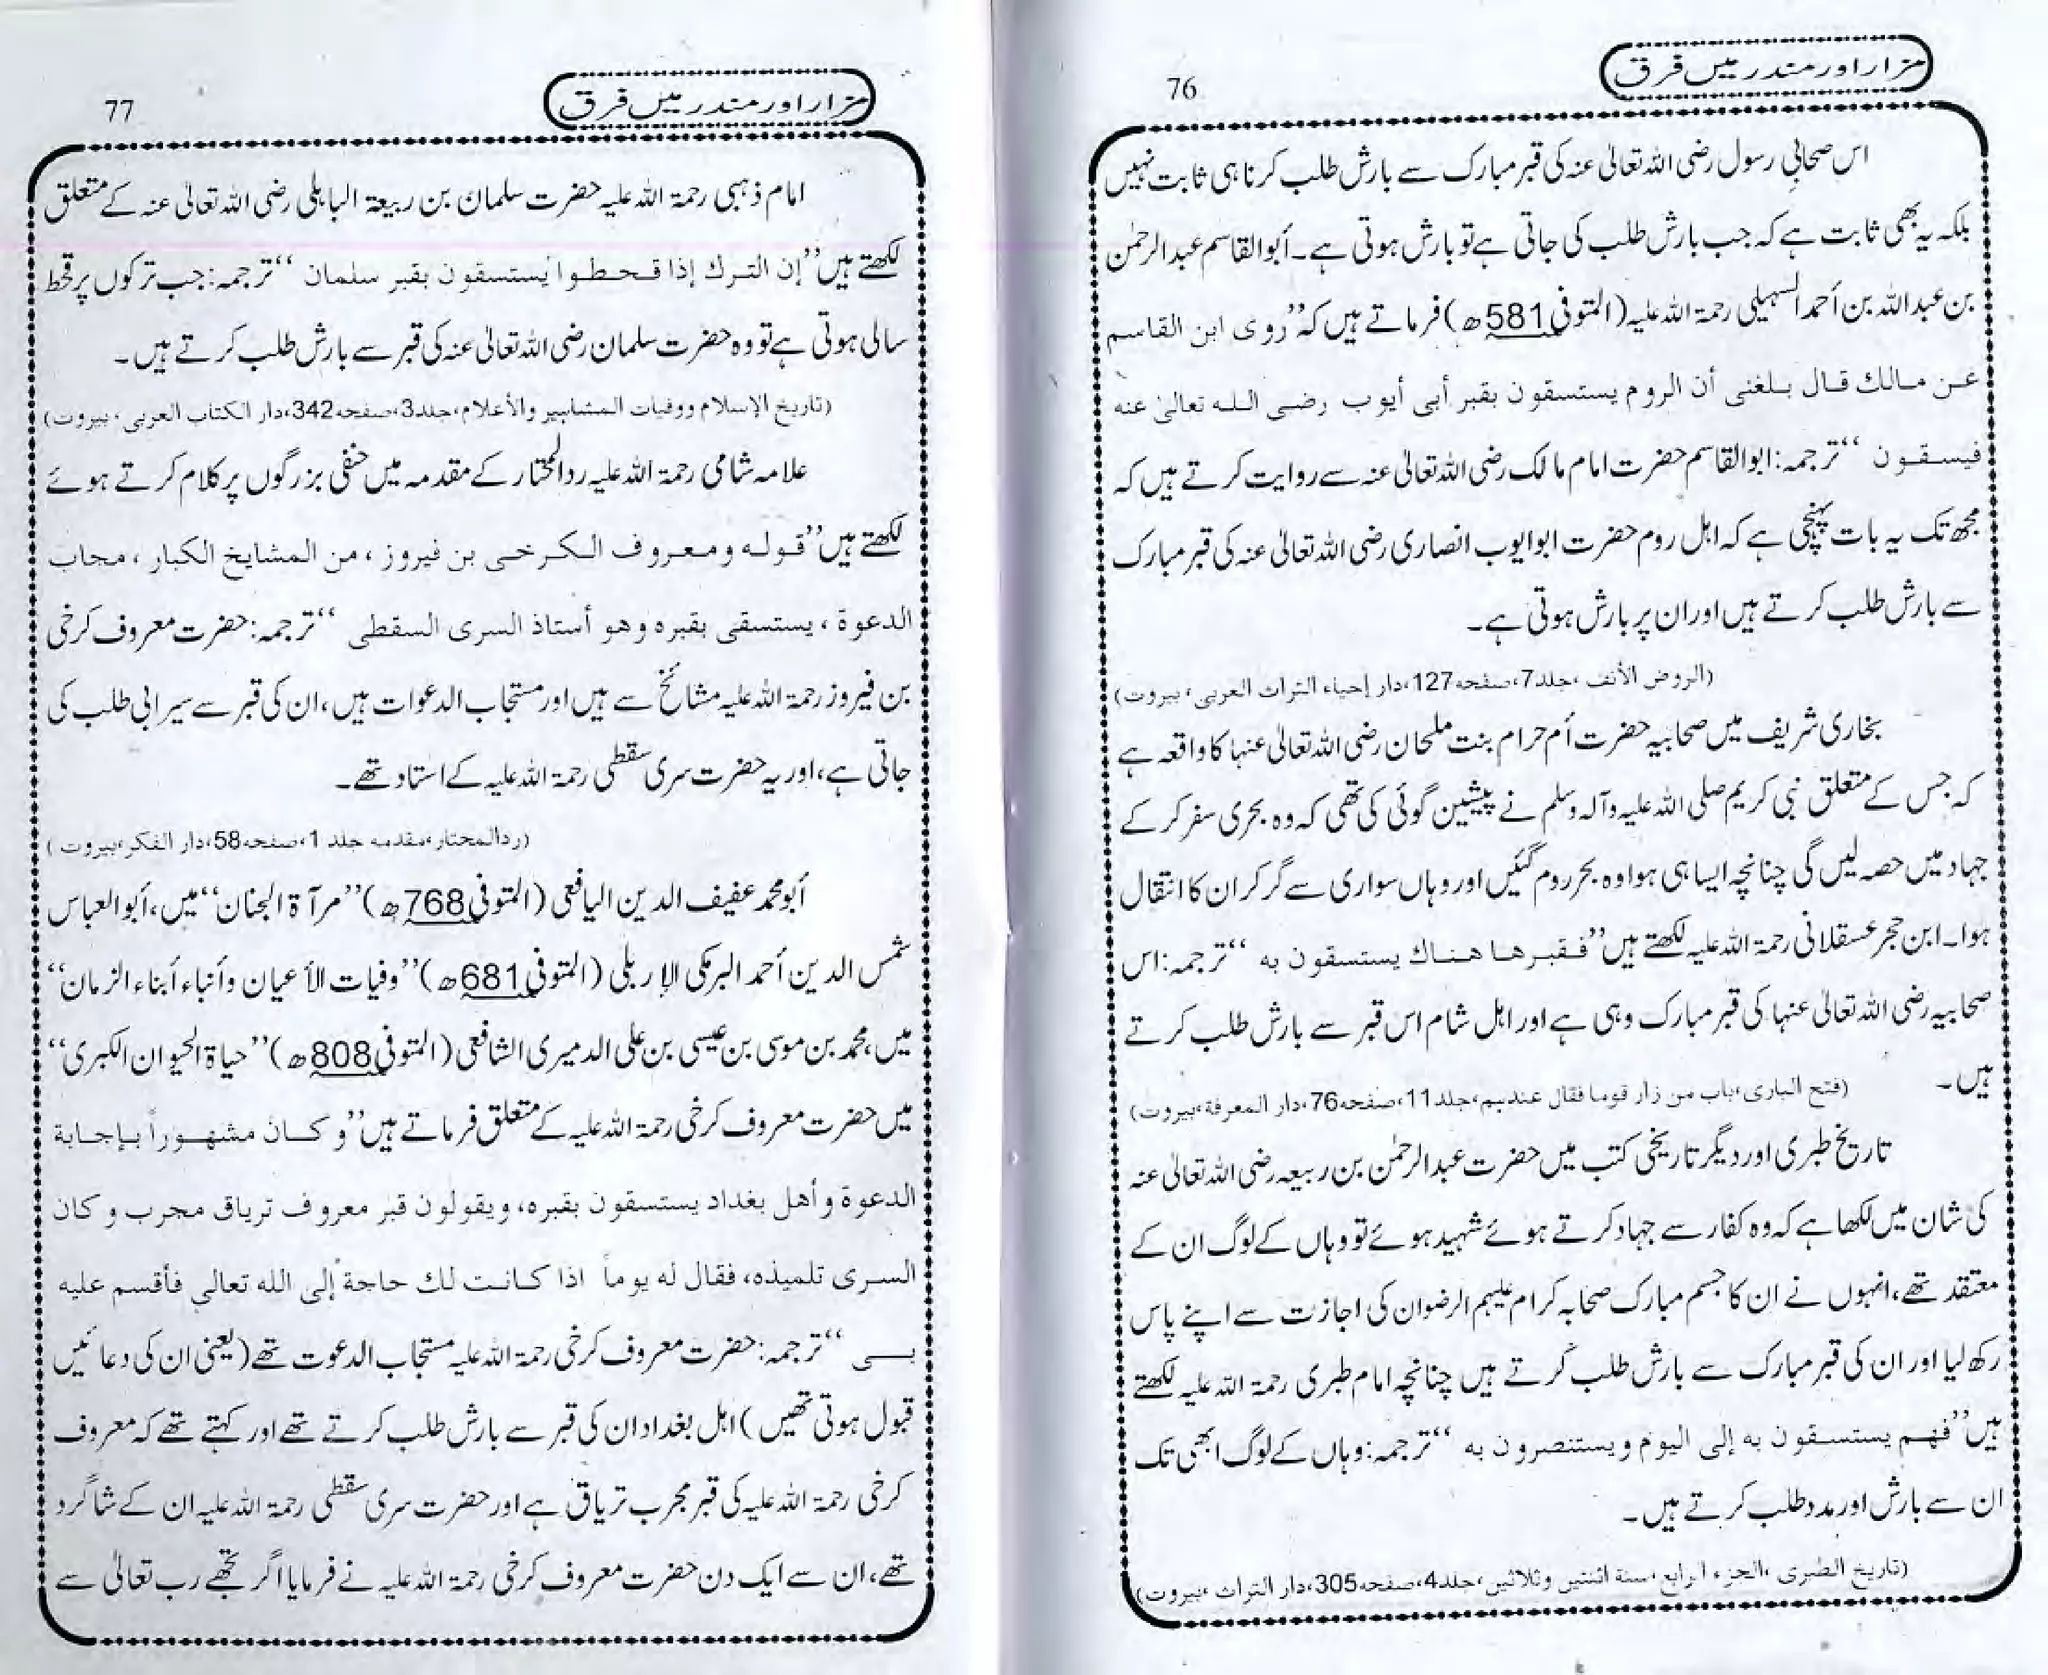 مزار اور مندر میں فرق
76
اس صحابیِ رسول رضی اللہ تعالیٰ عنہ کی قبر مبارک سے بارش طلب کرنا ہی ثابت نہیں
بلکہ یہ بھی ثابت ہے کہ جب بارش طلب کی جاتی ہے تو بارش ہوتی ہے۔ أبو القاسم عبد الرحمٰن
بن عبد اللہ بن أحمد السہیلی رحمۃ اللہ علیہ (المتوفی 581ھ) فرماتے ہیں کہ ’’روی ابن القاسم
عن مالك قال بلغنی أن الروم يستسقون بقبر أبی أيوب رضی الله تعالیٰ عنه
فيسقون‘‘ ترجمہ: ابوالقاسم حضرت امام مالک رضی اللہ تعالیٰ عنہ سے روایت کرتے ہیں کہ
مجھ تک یہ بات پہنچی ہے کہ اہل روم حضرت ابوایوب انصاری رضی اللہ تعالیٰ عنہ کی قبر مبارک
سے بارش طلب کرتے ہیں اور ان پر بارش ہوتی ہے۔
(الروض الأنف، جلد7، صفحہ127، دار إحیاء التراث العربی، بیروت)
بخاری شریف میں صحابیہ حضرت اُم حرام بنت ملحان رضی اللہ تعالیٰ عنہا کا واقعہ ہے
کہ جس کے متعلق نبی کریم صلی اللہ علیہ وآلہ وسلم نے پیشین گوئی کی تھی کہ وہ بحری سفر کر کے
جہاد میں حصہ لیں گی چنانچہ ایسا ہی ہوا وہ بحر روم گئیں اور وہاں سواری سے گر کر ان کا انتقال
ہوا۔ ابن حجر عسقلانی رحمۃ اللہ علیہ لکھتے ہیں ’’فقبرها هناك يستسقون به‘‘ ترجمہ: اس
صحابیہ رضی اللہ تعالیٰ عنہا کی قبر مبارک وہی ہے اور اہل شام اس قبر سے بارش طلب کرتے
ہیں۔ (فتح الباری، باب من زار قوما فقال عندہم، جلد11، صفحہ76، دار المعرفۃ، بیروت)
تاریخ طبری اور دیگر تاریخی کتب میں حضرت عبدالرحمٰن بن ربیعہ رضی اللہ تعالیٰ عنہ
کی شان میں لکھا ہے کہ وہ کفار سے جہاد کرتے ہوئے شہید ہوئے تو وہاں کے لوگ ان کے
معتقد تھے، انہوں نے ان کا جسم مبارک صحابہ کرام علیہم الرضوان کی اجازت سے اپنے پاس
رکھ لیا اور ان کی قبر مبارک سے بارش طلب کرتے ہیں چنانچہ امام طبری رحمۃ اللہ علیہ لکھتے
ہیں ’’فهم يستسقون به إلی اليوم ويستنصرون به‘‘ ترجمہ: وہاں کے لوگ ابھی تک
ان سے بارش اور مدد طلب کرتے ہیں۔
(تاریخ الطبری، الجزء الرابع، سنة اثنتین وثلاثین، جلد4، صفحہ305، دار التراث، بیروت)
مزار اور مندر میں فرق
77
امام ذہبی رحمۃ اللہ علیہ حضرت سلمان بن ربیعۃ الباہلی رضی اللہ تعالیٰ عنہ کے متعلق
لکھتے ہیں ’’إن الترك إذا قحطوا يستسقون بقبر سلمان‘‘ ترجمہ: جب ترکوں پر قحط
سالی ہوتی ہے تو وہ حضرت سلمان رضی اللہ تعالیٰ عنہ کی قبر سے بارش طلب کرتے ہیں۔
(تاریخ الإسلام ووفیات المشاہیر والأعلام، جلد3، صفحہ342، دار الکتاب العربی، بیروت)
علامہ شامی رحمۃ اللہ علیہ ردالمحتار کے مقدمہ میں حنفی بزرگوں پر کلام کرتے ہوئے
لکھتے ہیں ’’قوله ومعروف الكرخی بن فيروز، من المشايخ الكبار، مجاب
الدعوة، يستسقی بقبره وهو أستاذ السری السقطی‘‘ ترجمہ: حضرت معروف کرخی
بن فیروز رحمۃ اللہ علیہ مشائخ سے ہیں اور مستجاب الدعوات ہیں، ان کی قبر سے سیرابی طلب کی
جاتی ہے، اور یہ حضرت سری سقطی رحمۃ اللہ علیہ کے استاد تھے۔
(ردالمحتار، مقدمہ جلد 1، صفحہ58، دار الفکر، بیروت)
أبو محمد عفیف الدین الیافعی (المتوفی 768ھ) ’’مرآۃ الجنان‘‘ میں، أبو العباس
شمس الدین أحمد البرمکی الإربلی (المتوفی 681ھ) ’’وفیات الأعیان وأنباء أبناء الزمان‘‘
میں، محمد بن موسی بن عیسی بن علی الدمیری الشافعی (المتوفی 808ھ) ’’حیاۃ الحیوان الکبری‘‘
میں حضرت معروف کرخی رحمۃ اللہ علیہ کے متعلق فرماتے ہیں ’’وكان مشهوراً بإجابة
الدعوة وأهل بغداد يستسقون بقبره، ويقولون قبر معروف ترياق مجرب وكان
السری تلميذه، فقال له يوماً اذا كانت لك حاجة إلی الله تعالی فأقسم عليه
بی‘‘ ترجمہ: حضرت معروف کرخی رحمۃ اللہ علیہ مستجاب الدعوت تھے (یعنی ان کی دعائیں
قبول ہوتی تھیں) اہل بغداد ان کی قبر سے بارش طلب کرتے تھے اور کہتے تھے کہ معروف
کرخی رحمۃ اللہ علیہ کی قبر مجرب تریاق ہے اور حضرت سری سقطی رحمۃ اللہ علیہ ان کے شاگرد
تھے، ان سے ایک دن حضرت معروف کرخی رحمۃ اللہ علیہ نے فرمایا اگر تجھے رب تعالیٰ سے